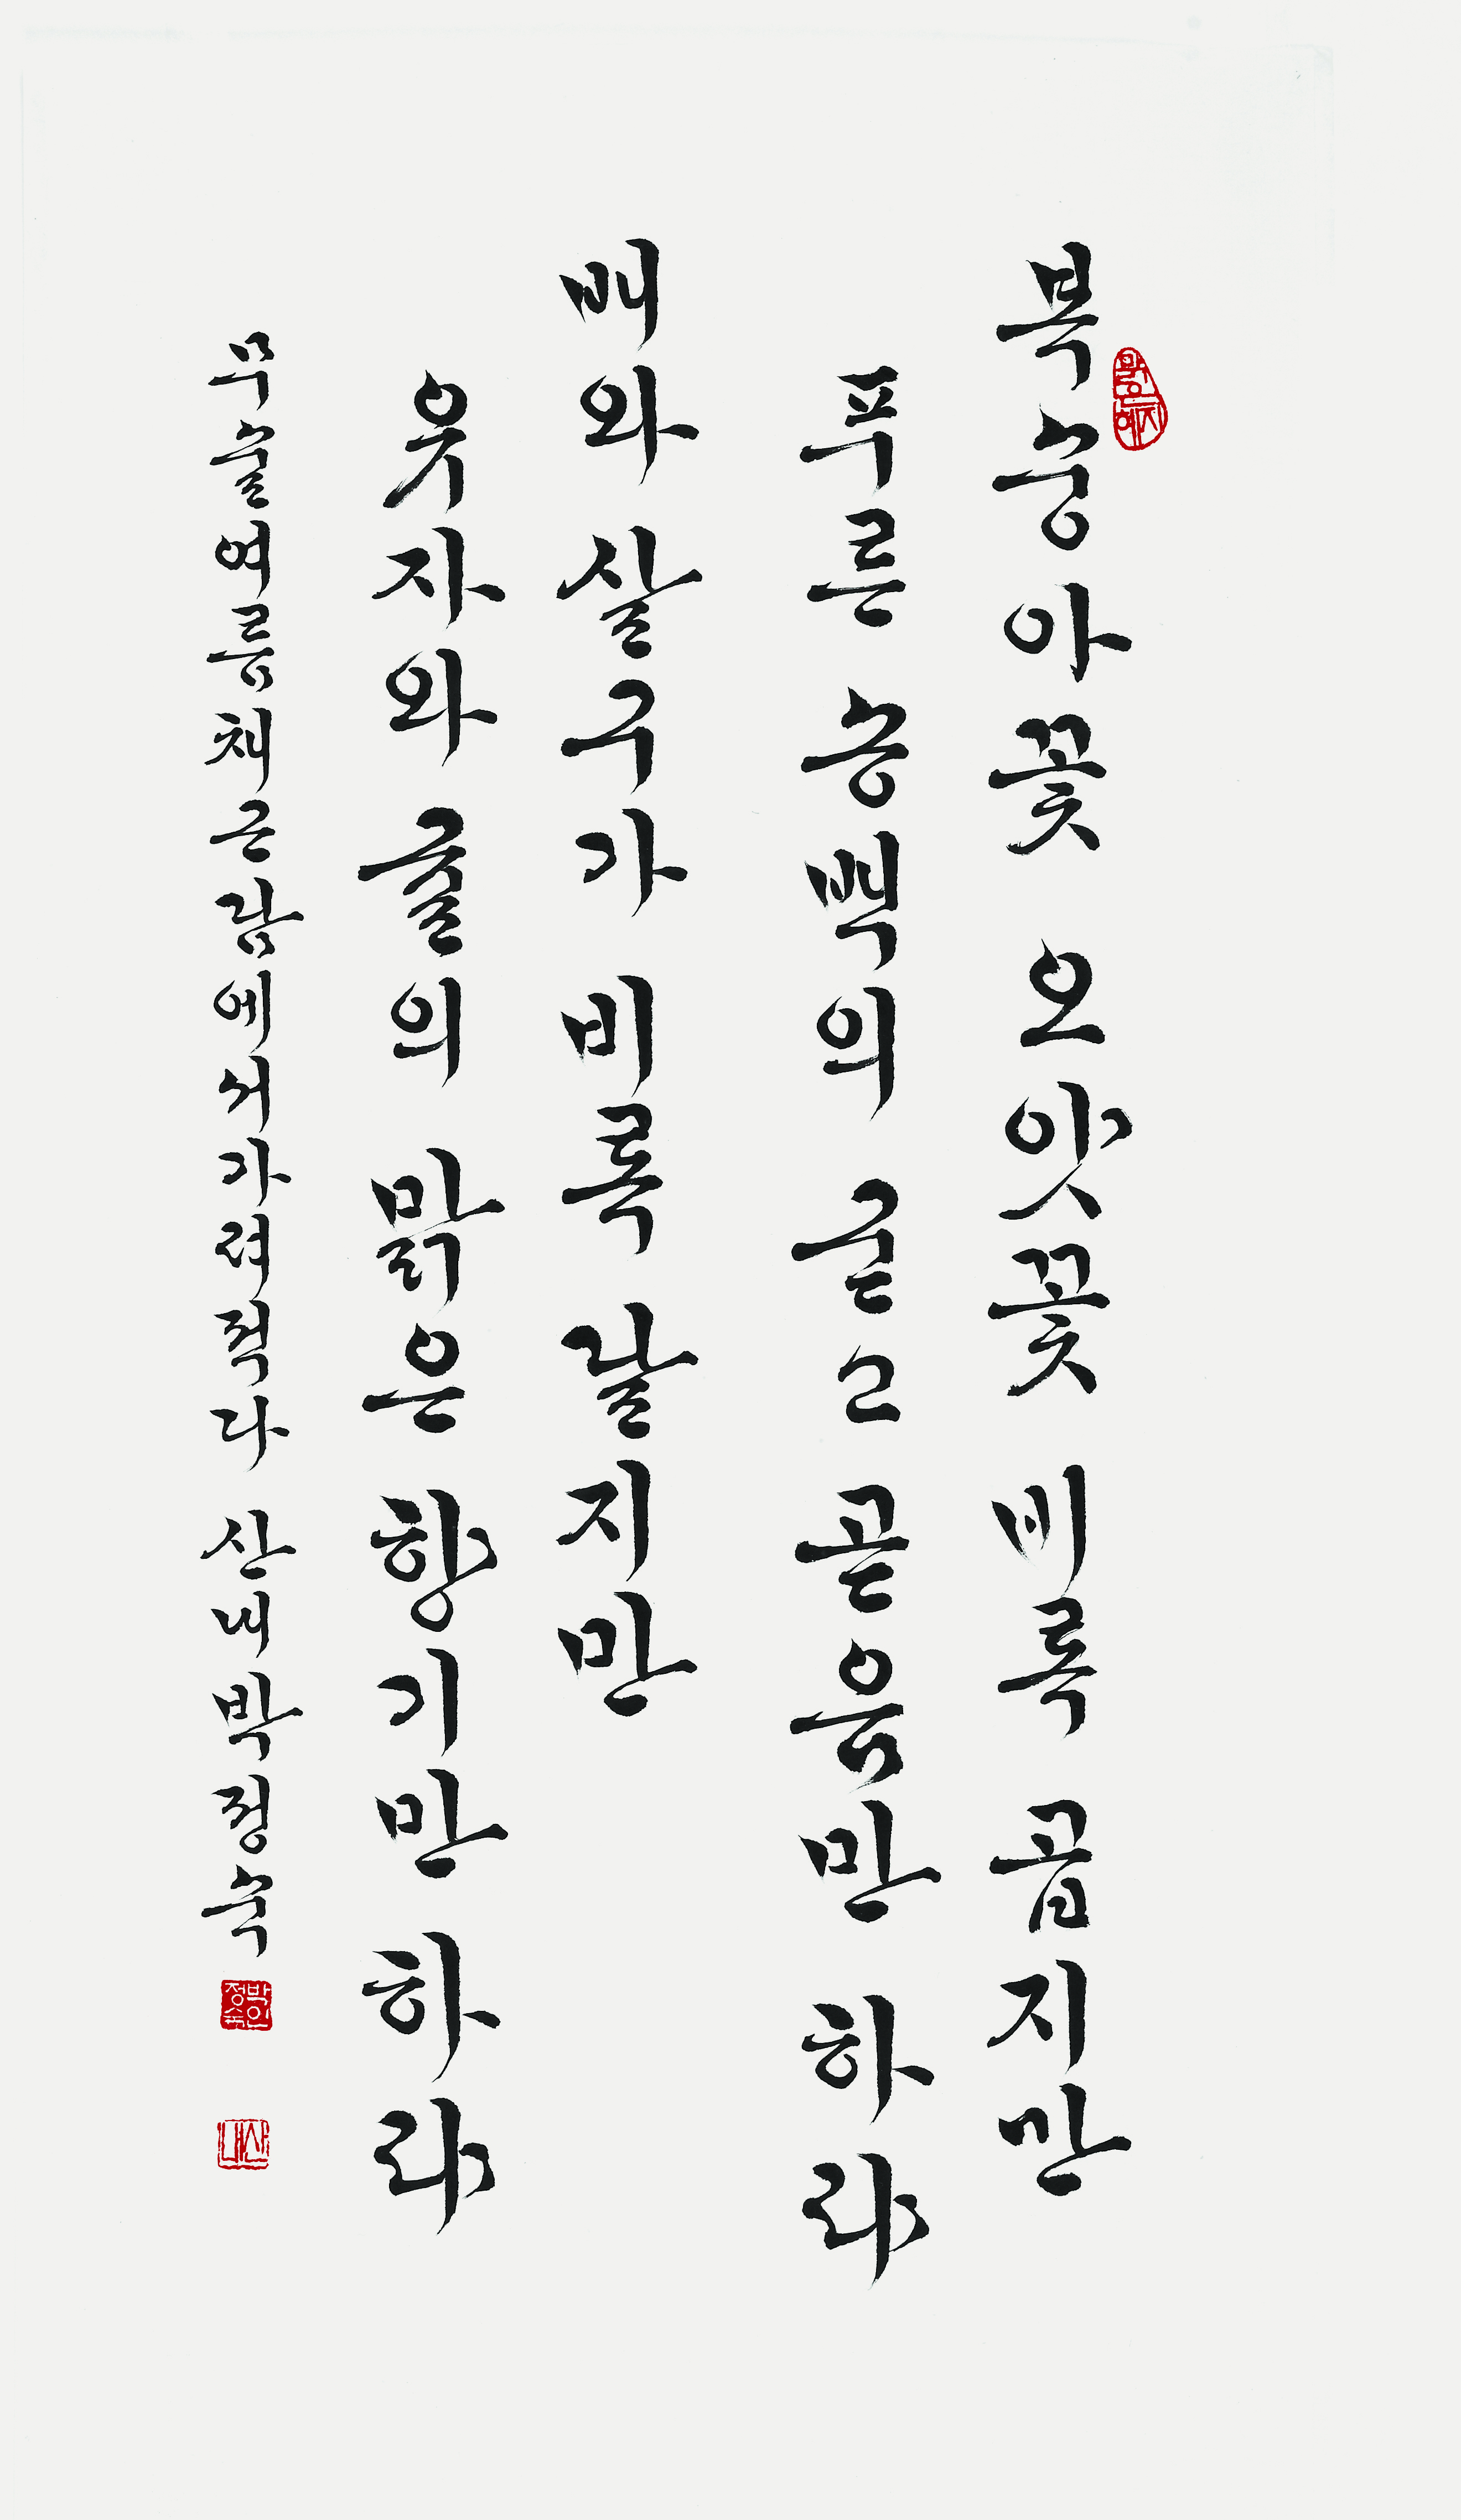 복숭아꽃 오얏꽃 비록 곱지만
푸른 송백의 굳고 곧음만 하랴
배와 살구가 비록 달지만
유자와 귤의 맑은 향기만 하랴
무술여름 채근담에서 가려 적다 산내 박정숙
박정숙인
산내